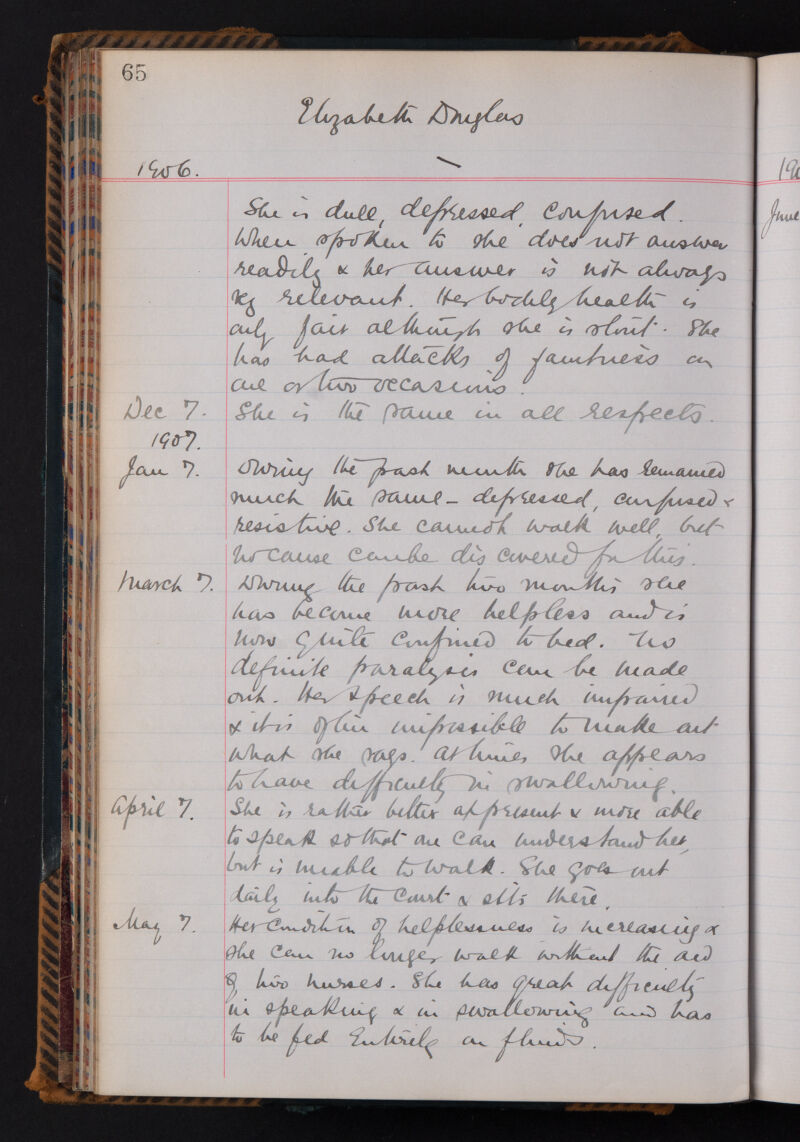 65
Elizabeth Douglas
1906.
She is dull, depressed, confused.
When spoken to she does not answer
readily & her answer is not always
very relevant. Her bodily health is
only fair although she is stout. She
has had attacks of faintness on
one or two occasions.
Dec 7. She is the same in all respects.
1907.
Jan 7. During the past month she has remained
much the same - depressed, confused &
resistive. She cannot walk well, but
no cause can be discovered for this.
March 7. During the past two months she
has become more helpless and is
now quite confined to bed. No
definite paralysis can be made
out. Her speech is much impaired
& it is often impossible to make out
what she says. At times she appears
to have difficulty in swallowing.
April 7. She is rather better at present & more able
to speak so that one can understand her,
but is unable to walk. She goes out
daily into the Court & sits there.
May 7. Her condition of helplessness is increasing &
she can no longer walk without the aid
of two nurses. She has great difficulty
in speaking & in swallowing and has
to be fed Entirely on fluids.
19
June